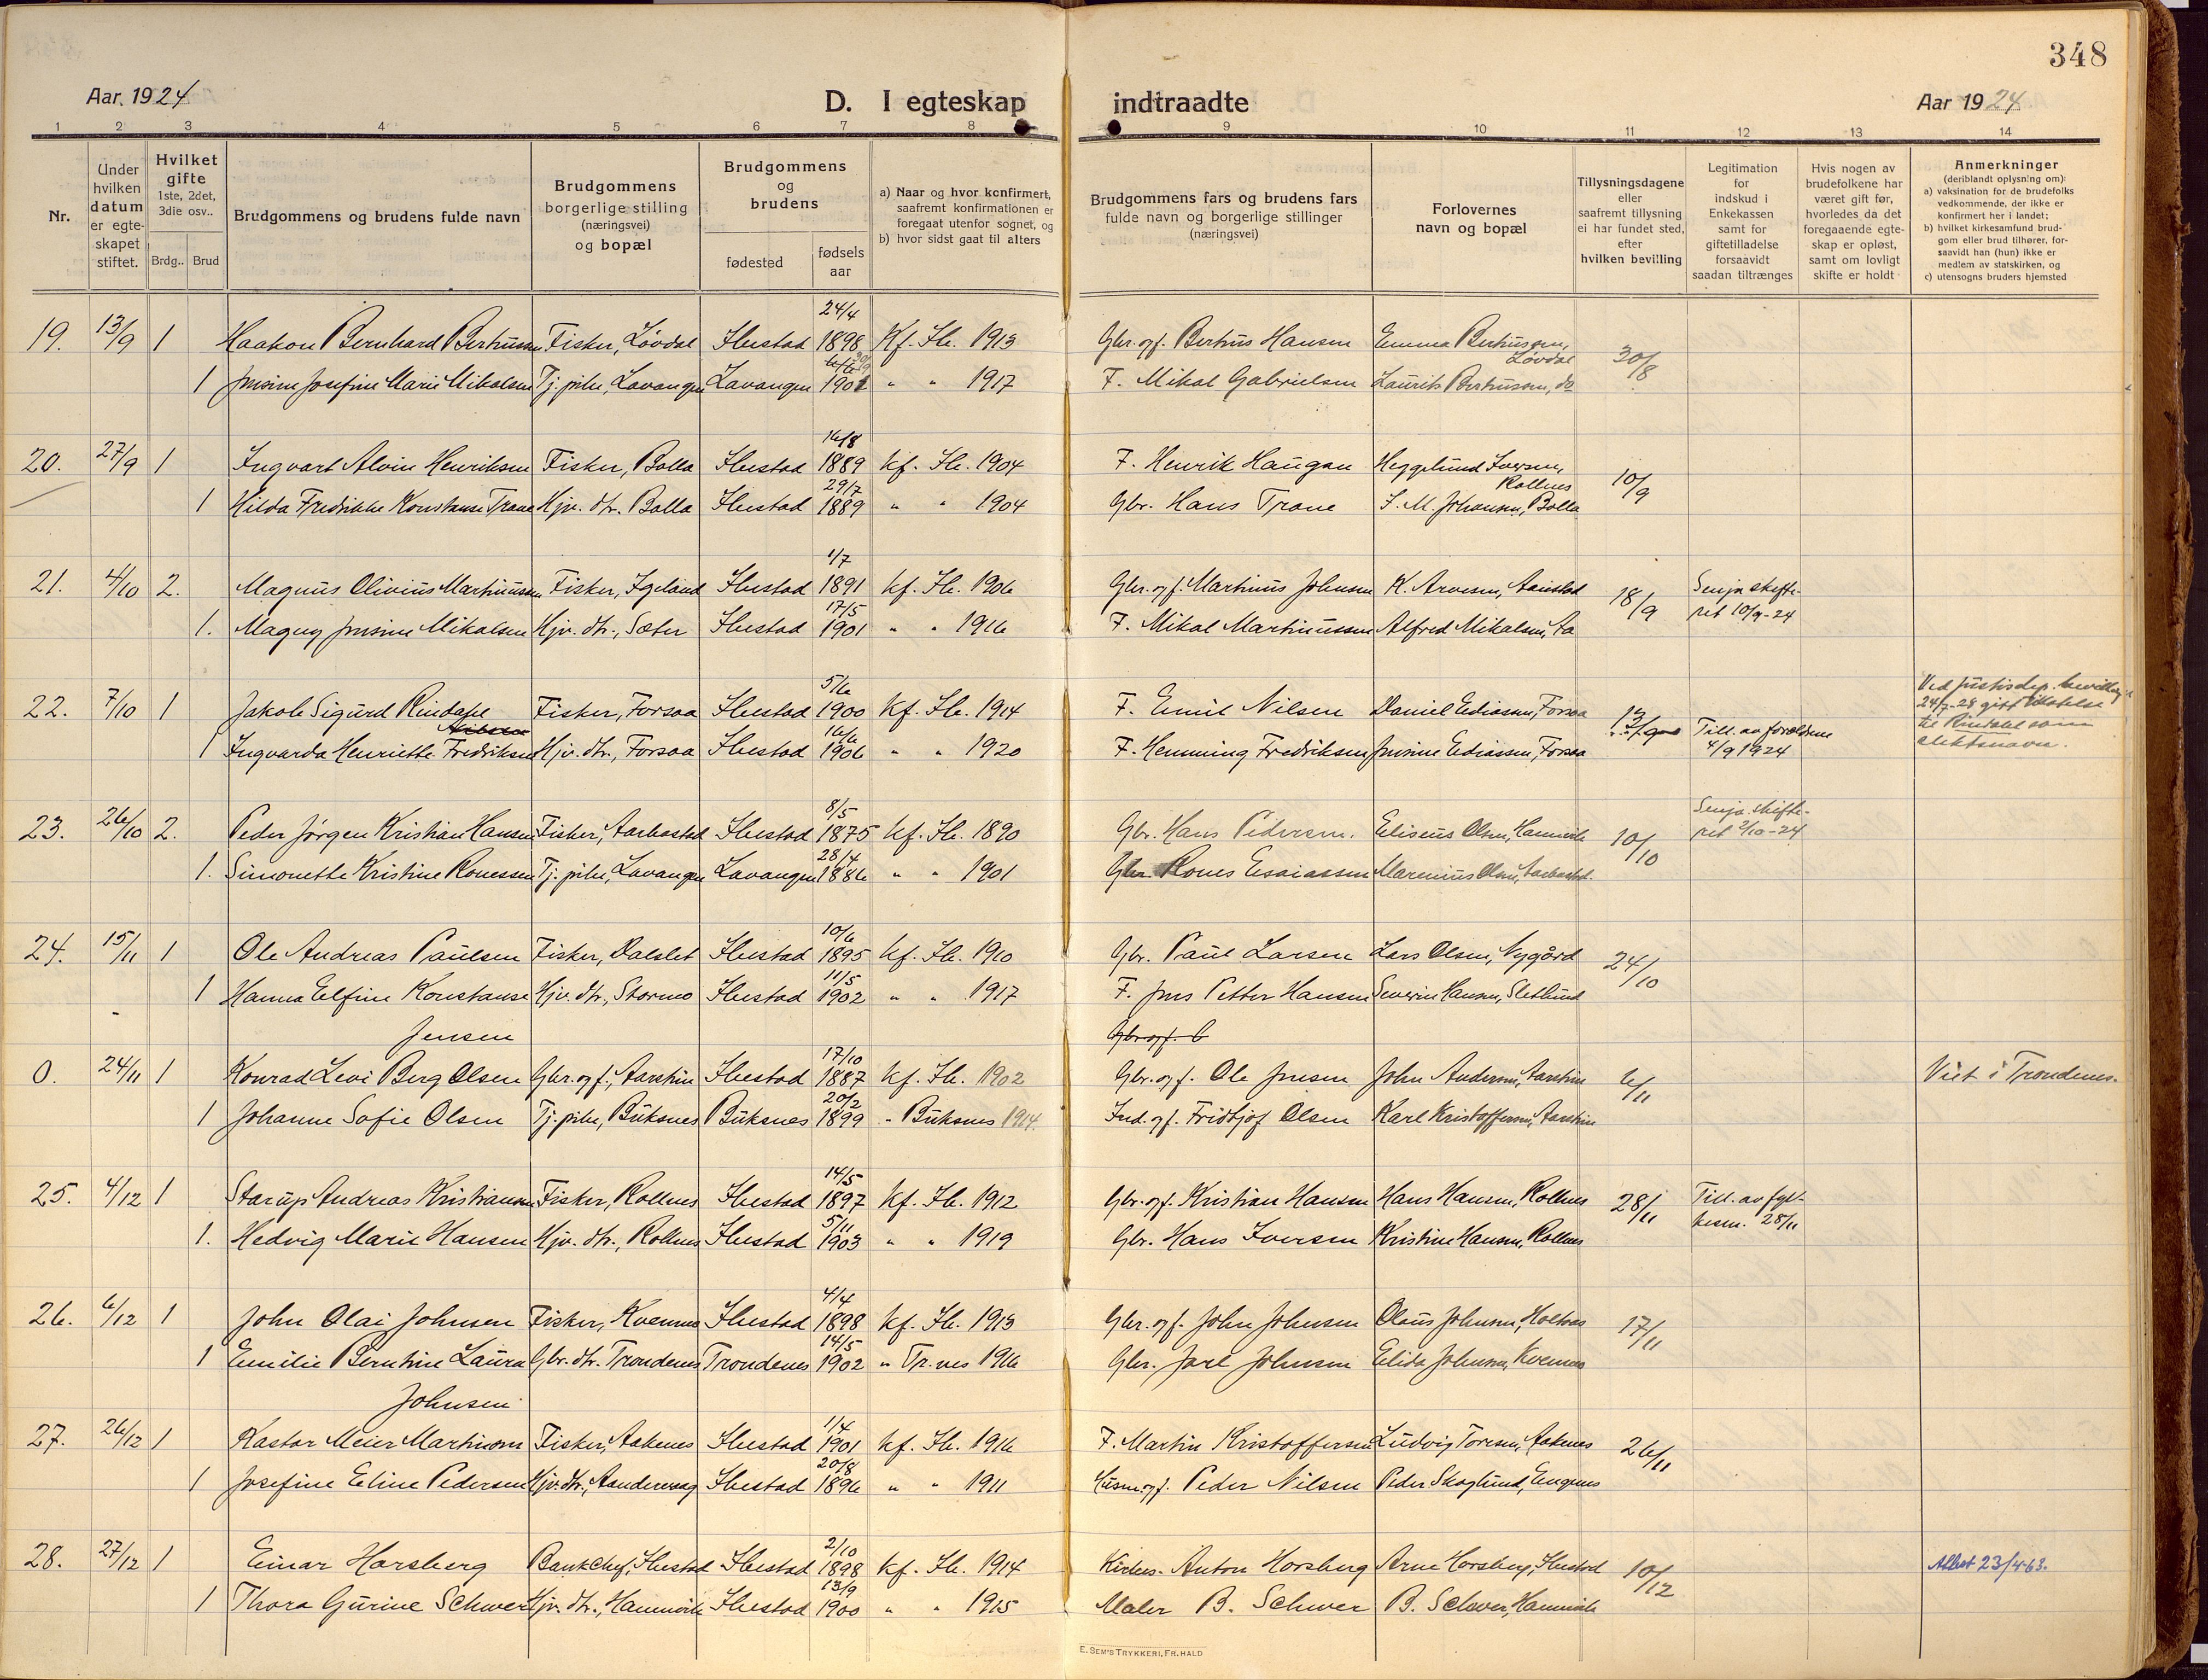 348
Aar. 1924 D. I egteskap indtraadte Aar 1924
1 2 3 4 5 6 7 8 9 10 11 12 13 14
Nr.
Under hvilken datum er egte-skapet stiftet.
Hvilket gifte 1ste, 2det, 3die osv..
Brdg.. Brud
Brudgommens og brudens fulde navn
Brudgommens borgerlige stilling (næringsvei) og bopæl
Brudgommens og brudens
fødested
fødsels aar
a) Naar og hvor konfirmert, saafremt konfirmationen er foregaat utenfor sognet, og
b) hvor sidst gaat til alters
Brudgommens fars og brudens fars fulde navn og borgerlige stillinger (næringsvei)
Forlovernes navn og bopæl
Tillysningsdagene eller saafremt tillysning ei har fundet sted, efter hvilken bevilling
Legitimation for indskud i Enkekassen samt for giftetilladelse forsaavidt saadan tiltrænges
Hvis nogen av brudefolkene har været gift før, hvorledes da det foregaaende egte-skap er opløst, samt om lovligt skifte er holdt
Anmerkninger (deriblandt oplysning om):
a) vaksination for de brudefolks vedkommende, der ikke er konfirmert her i landet;
b) hvilket kirkesamfund brud-gom eller brud tilhører, for-saavidt han (hun) ikke er medlem av statskirken, og
c) utensogns bruders hjemsted
19. 13/9 1 Haakon Bernhard Berthussen Fisker, Løvdal Ibestad 24/4 1898 Kf. Ib. 1913 Gbr. og f. Berthus Hansen Emma Berthussen, Løvdal 30/8
1 Jensine Josefine Marie Mikalsen Tj. pike, Lavangen Lavangen 1901 " " 1917 F. Mikal Gabrielsen Laurits Berthussen, do
20. 27/9 1 Ingvart Alvin Henriksen Fisker, Bolla Ibestad 16/8 1889 kf. Ib. 1904 F. Henrik Haugan Heggelund Iversen, Rollnes 10/9
1 Hilda Fredrikke Konstanse Trane Hjv. dtr. Bolla Ibestad 29/7 1889 " " 1904 Gbr. Hans Trane J. M. Johansen, Bolla
21. 4/10 2. Magnus Olivius Martinussen Fisker, Igeland Ibestad 1/7 1891 kf. Ib. 1906 Gbr. og f. Martinus Johnsen K. Arvesen, Aanstad 18/9 Senja skifte-ret 10/9-24
1. Magny Jensine Mikalsen Hjv. dtr., Sæter Ibestad 17/5 1901 " " 1916 F. Mikal Martinussen Alfred Mikalsen, Aa
22. 7/10 1 Jakob Sigurd Rindahl Fisker, Forsaa Ibestad 5/6 1900 Kf. Ib. 1914 F. Emil Nilsen Daniel Ediassen, Forsaa 13/9 Till. av forældrene 4/9 1924 Ved justisdep. bevilling 24/7-28 gitt tilladelse til Rindahl som slektsnavn.
1 Ingvarda Henriette Fredriksen Hjv. dtr., Forsaa Ibestad 16/6 1906 " " 1920 F. Hemming Fredriksen Jensine Ediassen, Forsaa
23. 26/10 2. Peder Jørgen Kristian Hansen Fisker, Aarbostad Ibestad 8/5 1875 kf. Ib. 1890 Gbr. Hans Pedersen. Eliseus Olsen, Hamnvik 10/10 Senja skifte-ret 2/10-24
1. Simonette Kristine Ronessen Tj. pike, Lavangen Lavangen 28/4 1886 " " 1901 Gbr. Rones Esaiassen Marenius Olsen, Aarbostad.
24. 15/11 1 Ole Andreas Paulsen Fisker, Dalslet Ibestad 10/6 1895 kf. Ib. 1910 Gbr. Paul Larsen Lars Olsen, Nygård 24/10
1 Hanna Elfine Konstanse Jensen Hjv. dtr., Stormo Ibestad 11/5 1902 " " 1917 F. Jens Petter Hansen Severin Hansen, Sletlund
Gbr og f.
0. 24/11 1 Konrad Levi Berg Olsen Gbr. og f., Aarstein Ibestad 17/10 1887 kf. Ib. 1902 Gbr. og f. Ole Jensen John Andersen, Aarstein 6/11 Viet i Trondenes.
1 Johanne Sofie Olsen Tj. pike, Buksnes Buksnes 20/2 1899 " Buksnes 1914. Ind. og f. Fridtjof Olsen Karl Kristoffersen, Aarstein
25. 4/12 1 Starup Andreas Kristiansen Fisker, Rollnes Ibestad 14/5 1897 kf. Ib. 1912 Gbr. og f. Kristian Hansen Hans Hansen, Rollnes 28/11 Till. av fyl. 28/11
1. Hedvig Marie Hansen Hjv. dtr., Rollnes Ibestad 5/11 1903 " " 1919 Gbr. Hans Iversen Kristine Hansen, Rollnes
26. 6/12 1 John Olai Johnsen Fisker, Kvernmo Ibestad 4/4 1898 kf. Ib. 1913 Gbr. og f. John Johnsen Olaus Johnsen, Holtaas 17/11
1 Emilie Berntine Laura Johnsen Gbr. dtr. Trondenes Trondenes 14/5 1902 " Tr.nes 1916 Gbr. Jarl Johnsen Elida Johnsen, Kvernmo
27. 26/12 1 Kastor Meier Martinsen Fisker, Aakenes Ibestad 1/4 1901 kf. Ib. 1916 F. Martin Kristoffersen Ludvig Toresen, Aakenes 26/11
1 Josefine Eline Pedersen Hjv. dtr., Aandervaag Ibestad 20/8 1896 " " 1911 Husm. og f. Peder Nilsen Peder Skoglund, Engenes
28. 27/12 1 Einar Horsberg Bankchef, Ibestad Ibestad 2/10 1898 kf. Ib. 1914 Kirkes. Anton Horsberg Arne Horsberg, Ibestad 10/12 Attest 23/4-63.
1 Thora Gurine Schwer Hjv. dtr., Hamnvik Ibestad 13/9 1900 " " 1915 Maler B. Schwer B. Schwer, Hamnvik
E. SEM'S TRYKKERI, FR.HALD